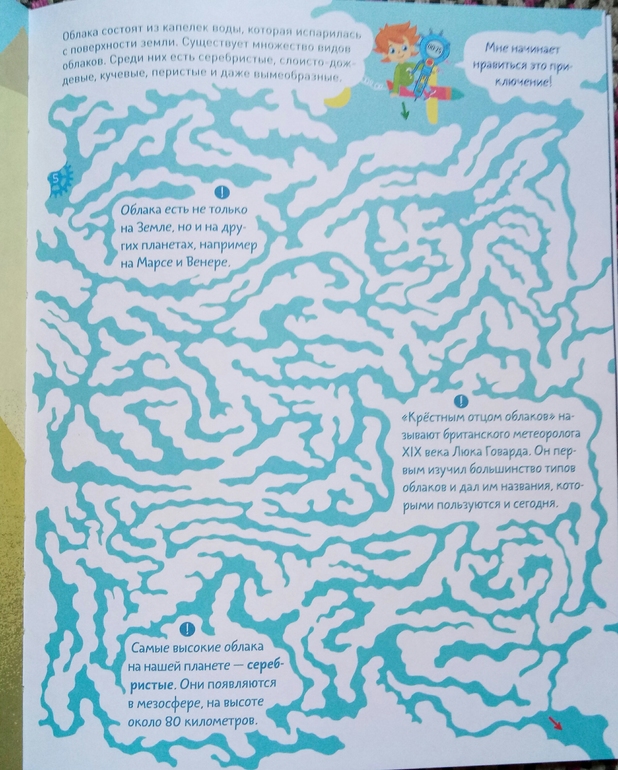 Облака состоят из капелек воды, которая испарилась
с поверхности земли. Существует множество видов
облаков. Среди них есть серебристые, слоисто-дож-
девые, кучевые, перистые и даже вымеобразные.
Мне начинает
нравиться это при-
ключение!
5
!
Облака есть не только
на Земле, но и на дру-
гих планетах, например
на Марсе и Венере.
!
«Крёстным отцом облаков» на-
зывают британского метеоролога
XIX века Люка Говарда. Он пер-
вым изучил большинство типов
облаков и дал им названия, кото-
рыми пользуются и сегодня.
!
Самые высокие облака
на нашей планете — сереб-
ристые. Они появляются
в мезосфере, на высоте
около 80 километров.